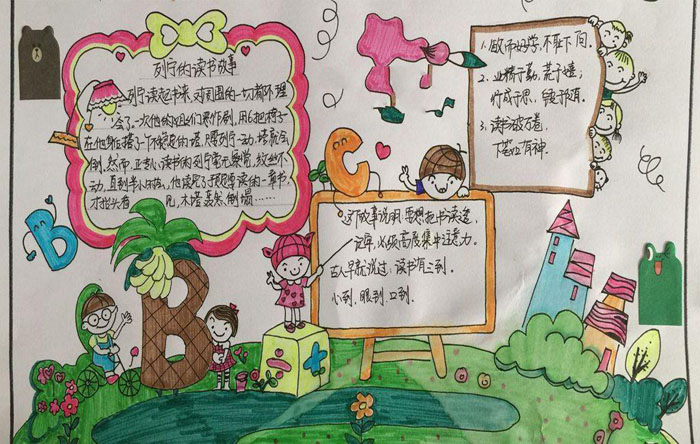 列宁的读书故事
列宁读起书来,对周围的一切都不理
会了。一次他的姐姐们恶作剧,用6把椅子
在他身后搭了一个不稳定的塔,只要列宁一动,塔就会
倒,然而,正专心读书的列宁毫无察觉,纹丝不
动,直到半小时后,他读完了预定要读的一章书,
才抬头看 见,木塔轰然倒塌……
1.敏而好学,不耻下问。
2.业精于勤,荒于嬉;
行成于思,毁于随。
3.读书破万卷,
下笔如有神。
这个故事说明:要想把书读透,
记牢,必须高度集中注意力。
古人早就说过:读书有三到。
心到、眼到、口到。
B
C
B
÷
+
×